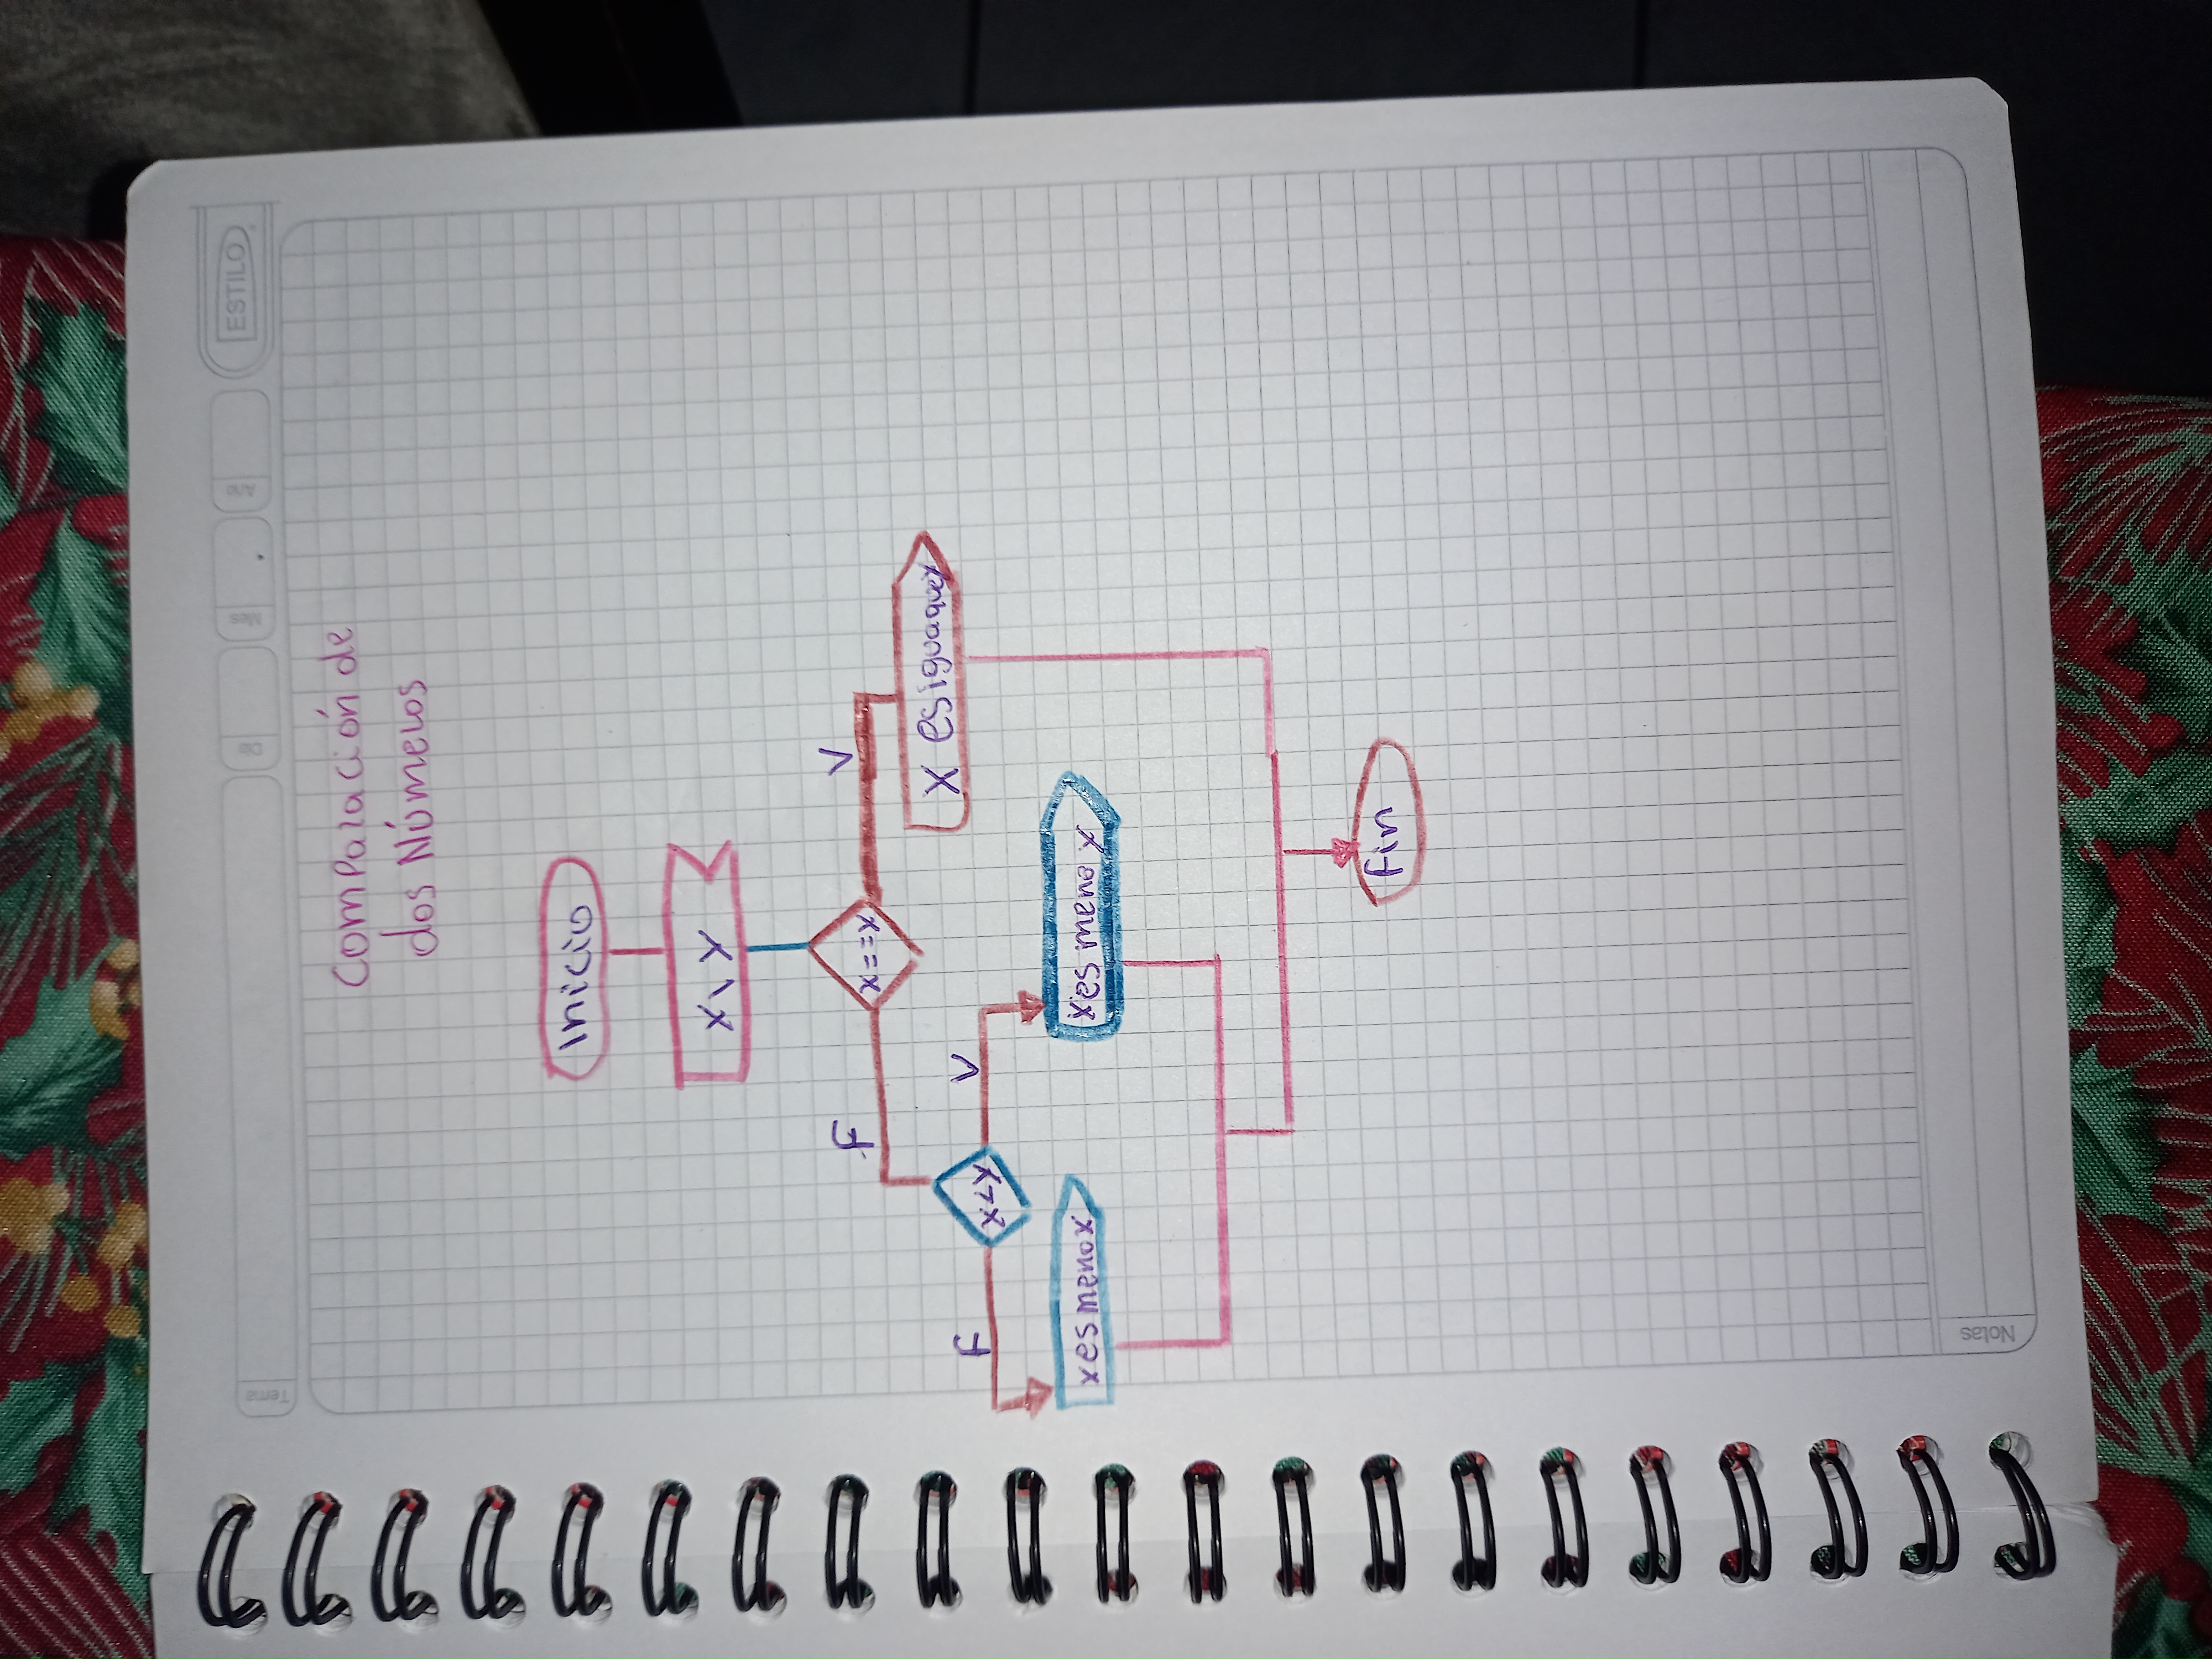 Tema
Dia
Mes
Año
ESTILO
Comparación de
dos Números
Inicio
X, Y
F
V
X==X
X es igua que Y
F
V
X<Y
X es meno X
X es meno Y
Fin
Notas